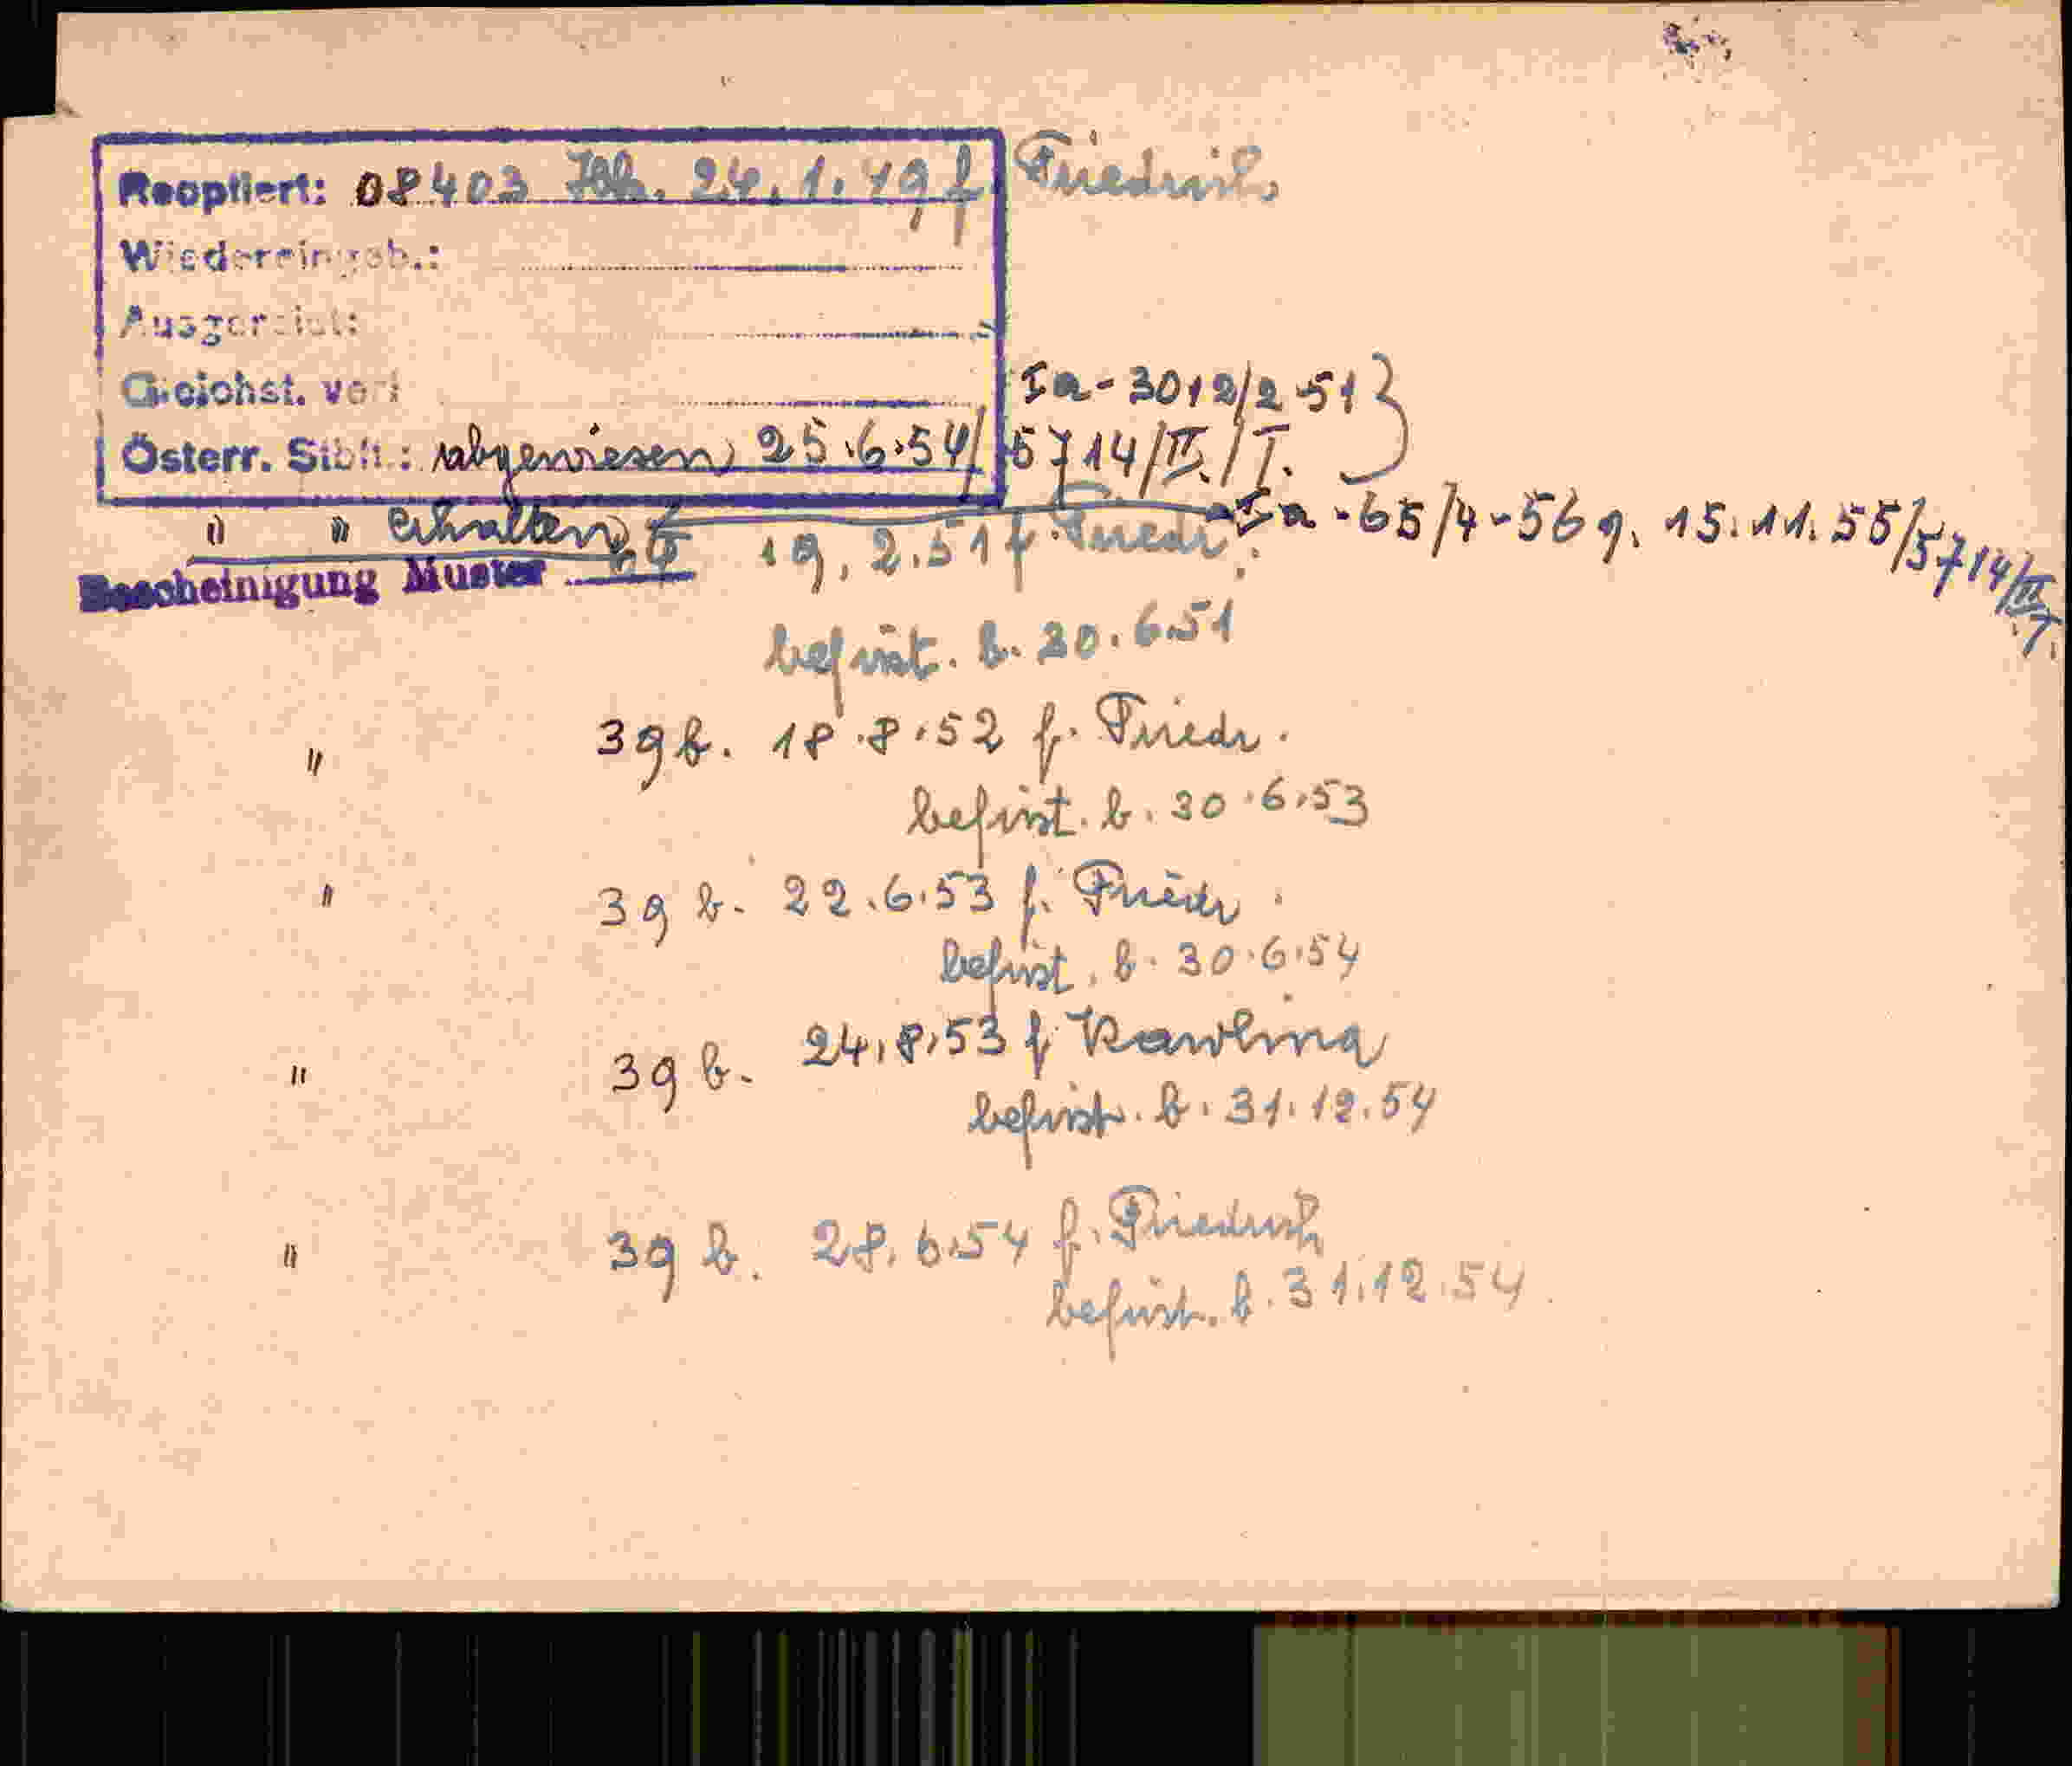 Reoptiert: 08403 Jbk. 24.1.49 f. Friedrich
Wiedereingeb.:
Ausgereist:
Gleichst. verl
Ia-3012/2-51}
Österr. Stbh.: abgewiesen 25.6.54/5714/II./I.
" " erhalten Ia-65/4-56 g. 15.11.55/5714/II/I.
Bescheinigung Muster 19.2.51 f. Friedr.
befrist. b. 30.6.51
" 39 b. 18.8.52 f. Friedr.
befrist. b. 30.6.53
" 39 b. 22.6.53 f. Friedr.
befrist. b. 30.6.54
" 39 b. 24.8.53 f Karolina
befrist. b. 31.12.54
" 39 b. 28.6.54 f. Friedrich
befrist. b. 31.12.54.